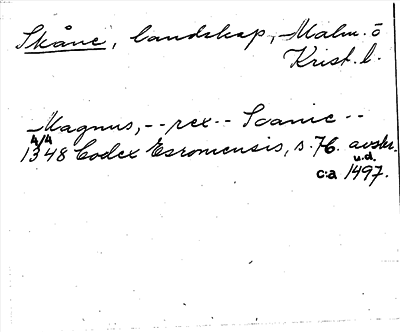 Skåne, landskap, Malm. o
Krist. l.
Magnus, -- rex -- Scanie --
4/4
1348 Codex Esromensis, s. 76. avskr.
u.d.
c:a 1497.